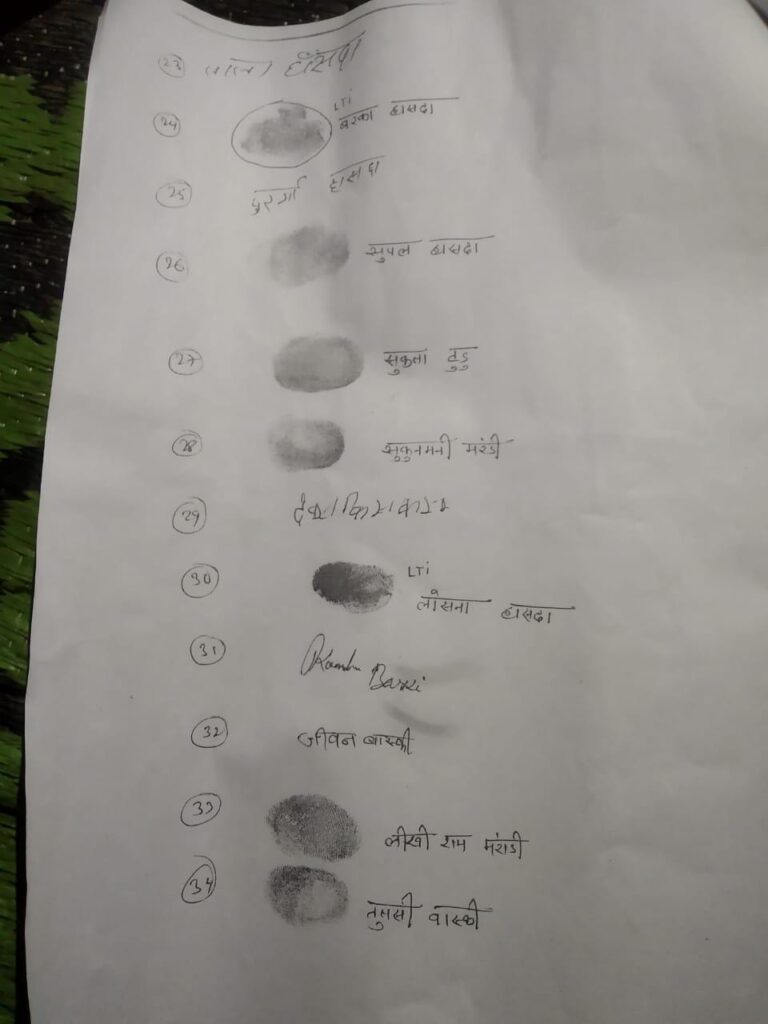 23 हाँसदा
24 LTi बरका हासदा
25 दुर्गा हासदा
26 सुपल हासदा
27 सुकता टुडु
28 सुकुनमनी मरंडी
29
30 LTi
लोसना हासदा
31
32 जीवन बास्की
33 लीखी राम मंराडी
34 तुलसी वास्की